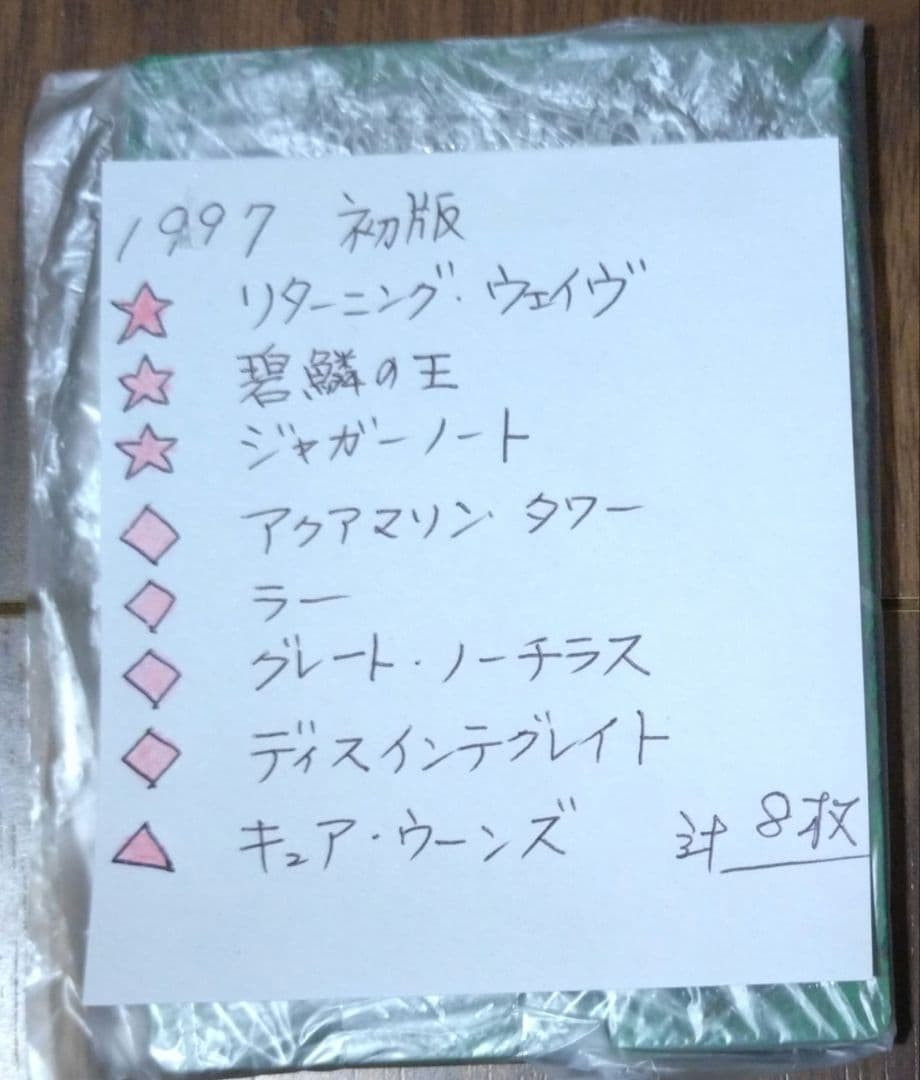 1997 初版
★ リターニング・ウェイヴ
★ 碧鱗の王
★ ジャガーノート
◇ アクアマリン タワー
◇ ラー
◇ グレート・ノーチラス
◇ ディスインテグレイト
△ キュア・ウーンズ 計 8枚